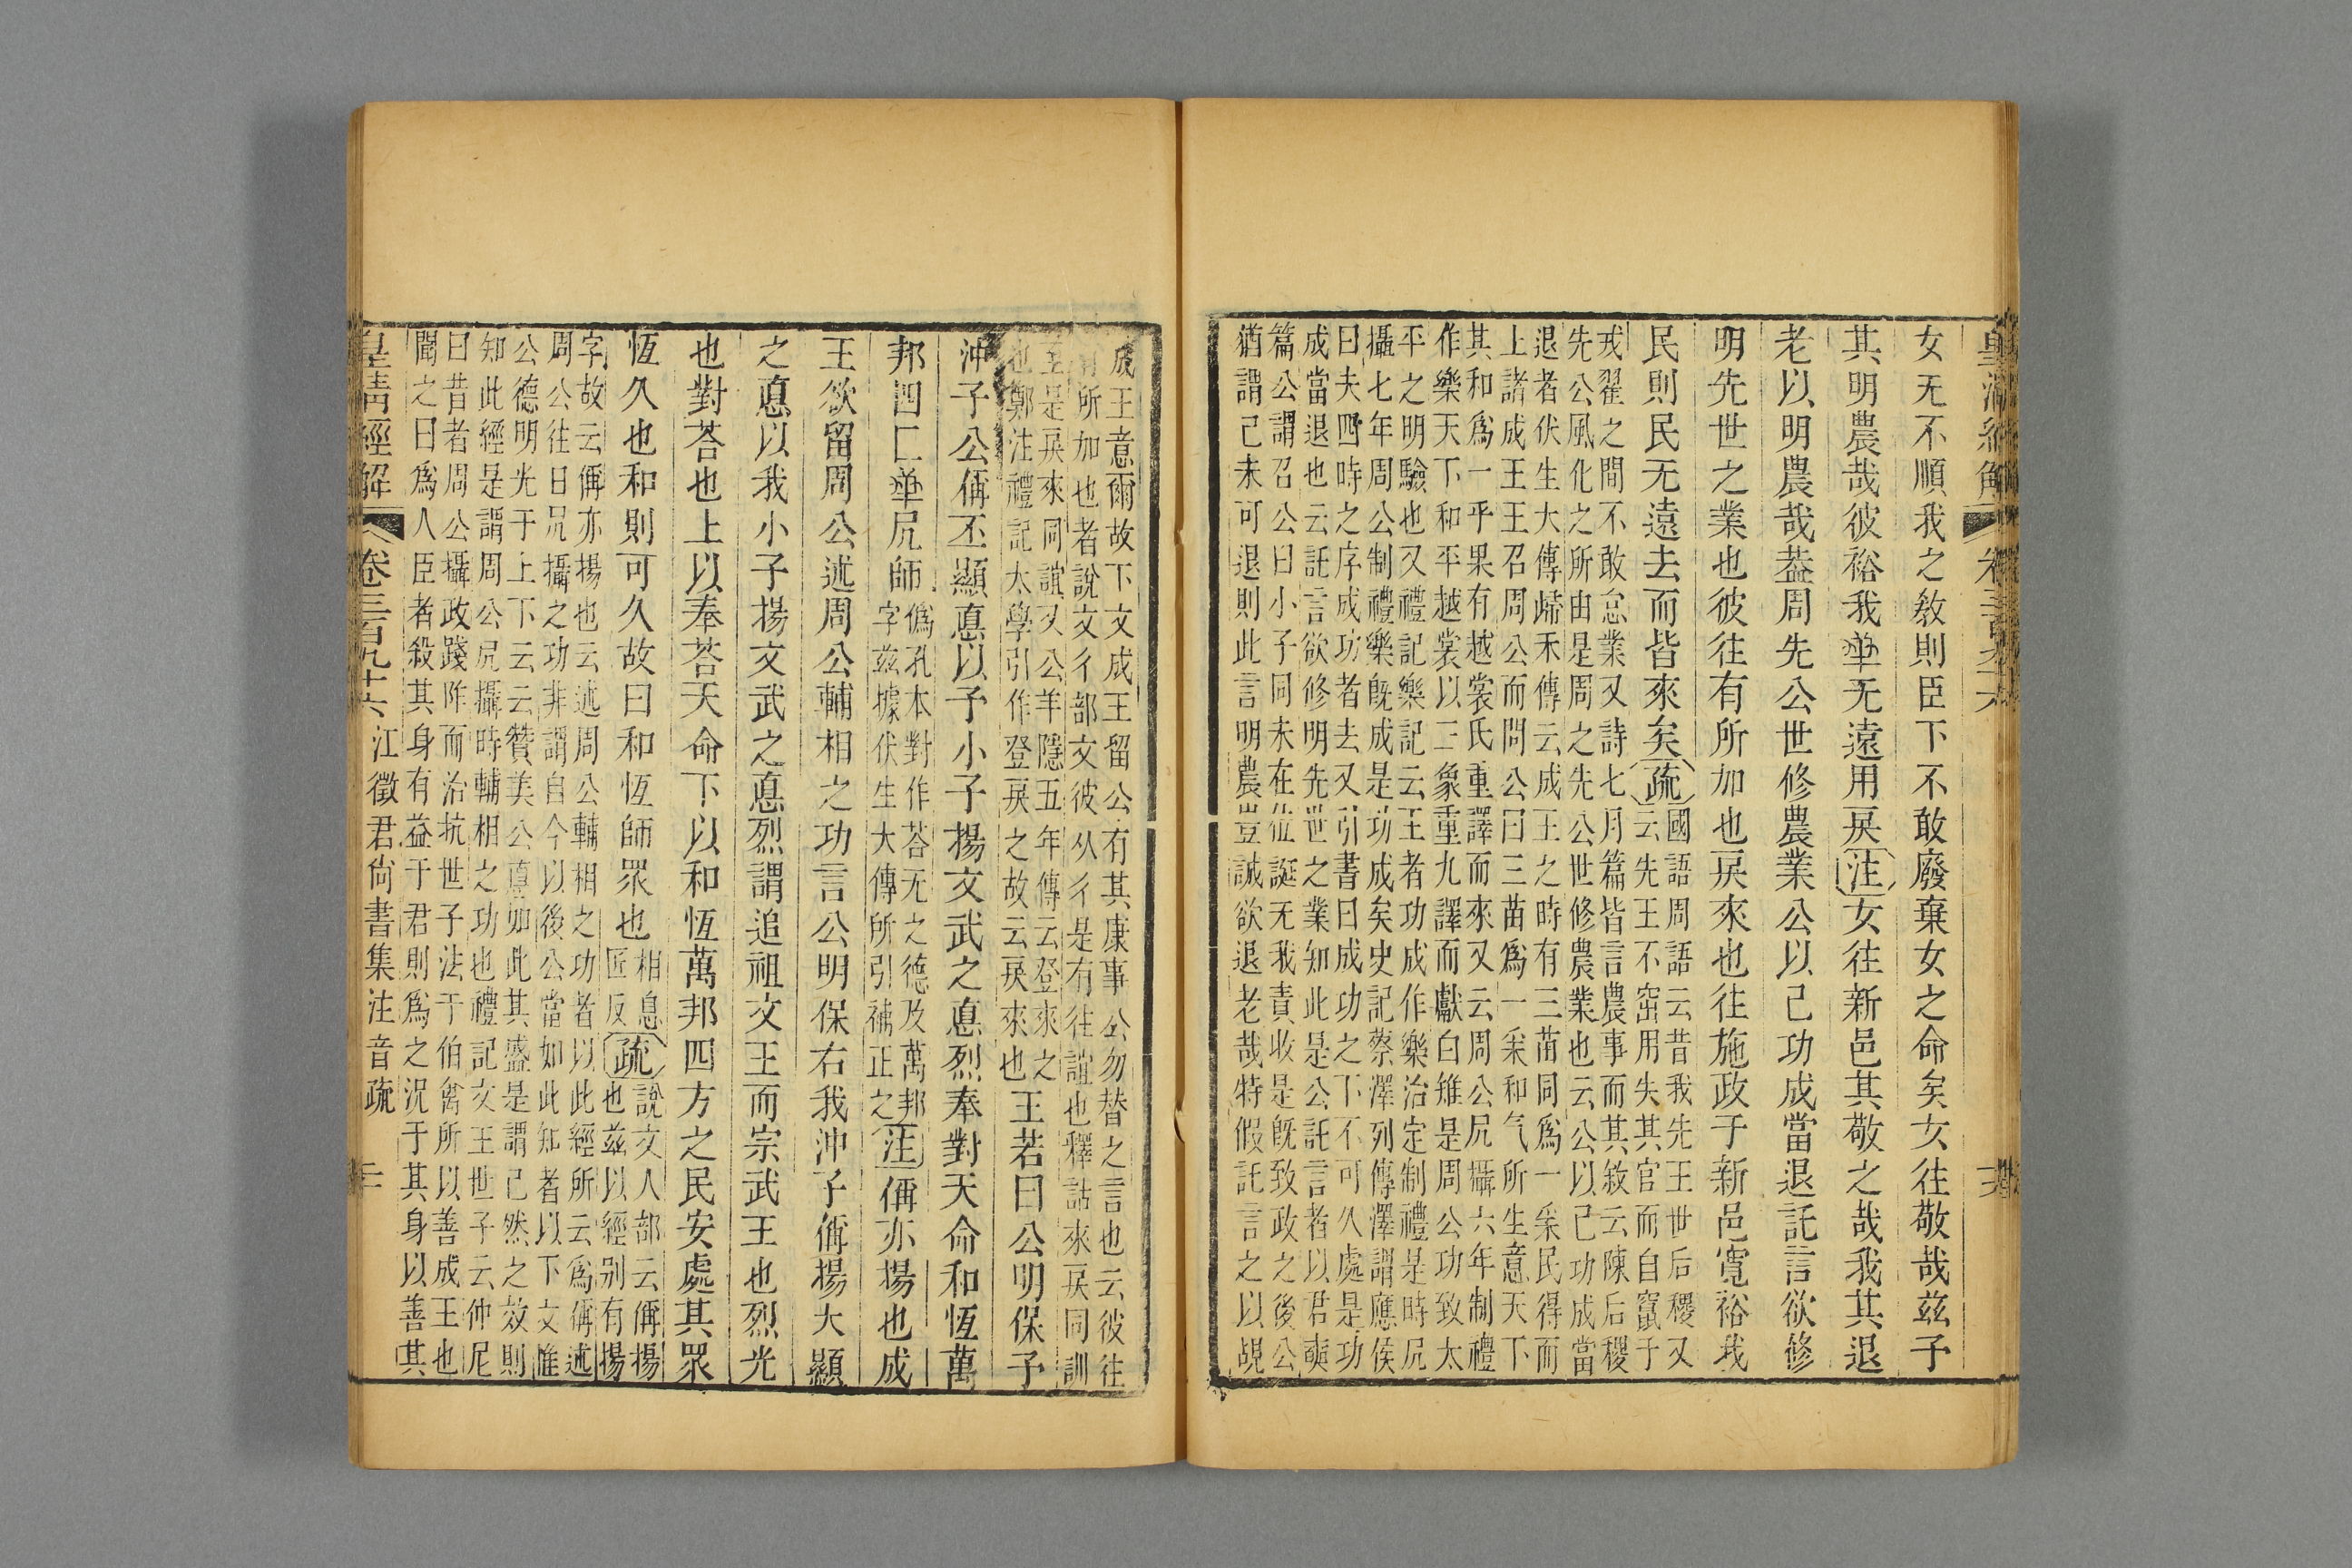 皇清經解 卷三百九十六
女无不順我之敎則臣下不敢廢棄女之命矣女往敬哉兹予
其明農哉彼裕我𠦪无遠用戾注女往新邑其敬之哉我其退
老以明農哉葢周先公世修農業公以己功成當退託言欲修
明先世之業也彼往有所加也戾來也往施政于新邑寬裕我
民則民无遠去而皆來矣疏
國語周語云昔我先王世后稷又
云先王不窋用失其官而自竄于
戎翟之間不敢怠業又詩七月篇皆言農事而其敘云陳后稷
先公風化之所由是周之先公世修農業也云公以己功成當
退者伏生大傳歸禾傳云成王之時有三苗同爲一采民得而
上諸成王王召周公而問公曰三苗爲一采和气所生意天下
其和爲一乎果有越裳氏重譯而來又云周公凥攝六年制禮
作樂天下和平越裳以三象重九譯而獻白雉是周公功致太
平之明驗也又禮記樂記云王者功成作樂治定制禮是時凥
攝七年周公制禮樂旣成是功成矣史記蔡澤列傳澤謂應侯
曰夫四時之序成功者去又引書曰成功之下不可久處是功
成當退也云託言欲修明先世之業知此是公託言者以君奭
篇公謂召公曰小子同未在位誕无我責收是旣致政之後公
猶謂己未可退則此言明農豈誠欲退老哉特假託言之以覘
成王意爾故下文成王留公有其康事公勿替之言也云彼往
有所加也者說文彳部文彼从彳是有往誼也釋詁來戾同訓
至是戾來同誼又公羊隱五年傳云登來之
也鄭注禮記大學引作登戾之故云戾來也
王若曰公明保予
沖子公偁丕顯悳以予小子揚文武之悳烈奉對天命和恆萬
邦四匚𠦪凥師
僞孔本對作荅无之德及萬邦
字兹據伏生大傳所引補正之
注偁亦揚也成
王欲留周公述周公輔相之功言公明保右我沖子偁揚大顯
之悳以我小子揚文武之悳烈謂追祖文王而宗武王也烈光
也對荅也上以奉荅天命下以和恆萬邦四方之民安處其眾
恆久也和則可久故曰和恆師眾也
相息
匠反
疏
說文人部云偁揚
也兹以經別有揚
字故云偁亦揚也云述周公輔相之功者以此經所云爲偁述
周公往日凥攝之功非謂自今以後公當如此知者以下文惟
公德明光于上下云云贊美公悳如此其盛是謂已然之效則
知此經是謂周公凥攝時輔相之功也禮記文王世子云仲尼
曰昔者周公攝政踐阼而治抗世子法于伯禽所以善成王也
聞之曰爲人臣者殺其身有益于君則爲之況于其身以善其
皇清經解 卷三百九十六 江徵君尙書集注音疏